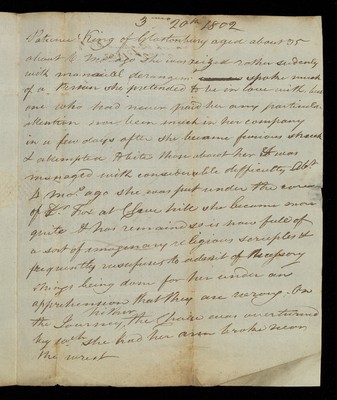 3 20th 1802
Patience King of Glastonbury aged about 35
about 4 mos ago she was seized rather suddenly
with maniacal derangemt spoke much
of a Person she pretended to be in love with but
one who had never paid her any particular
attention nor been much in her company
in a few days after she became furious shriek'd
& attempted to bite those about her & was
managed with considerable difficulty Abt
mos ago she was put under the care
of Dr Fox at Cleve hill she became more
quite & has remained so is now full of
a sort of imaginary religious scruples &
frequently refuses to admit of necessary
things being done for her under an
apprehension that they are wrong. On
the Journey hither the Chaise was overturned
by wch she had her arm broke near
the wrist